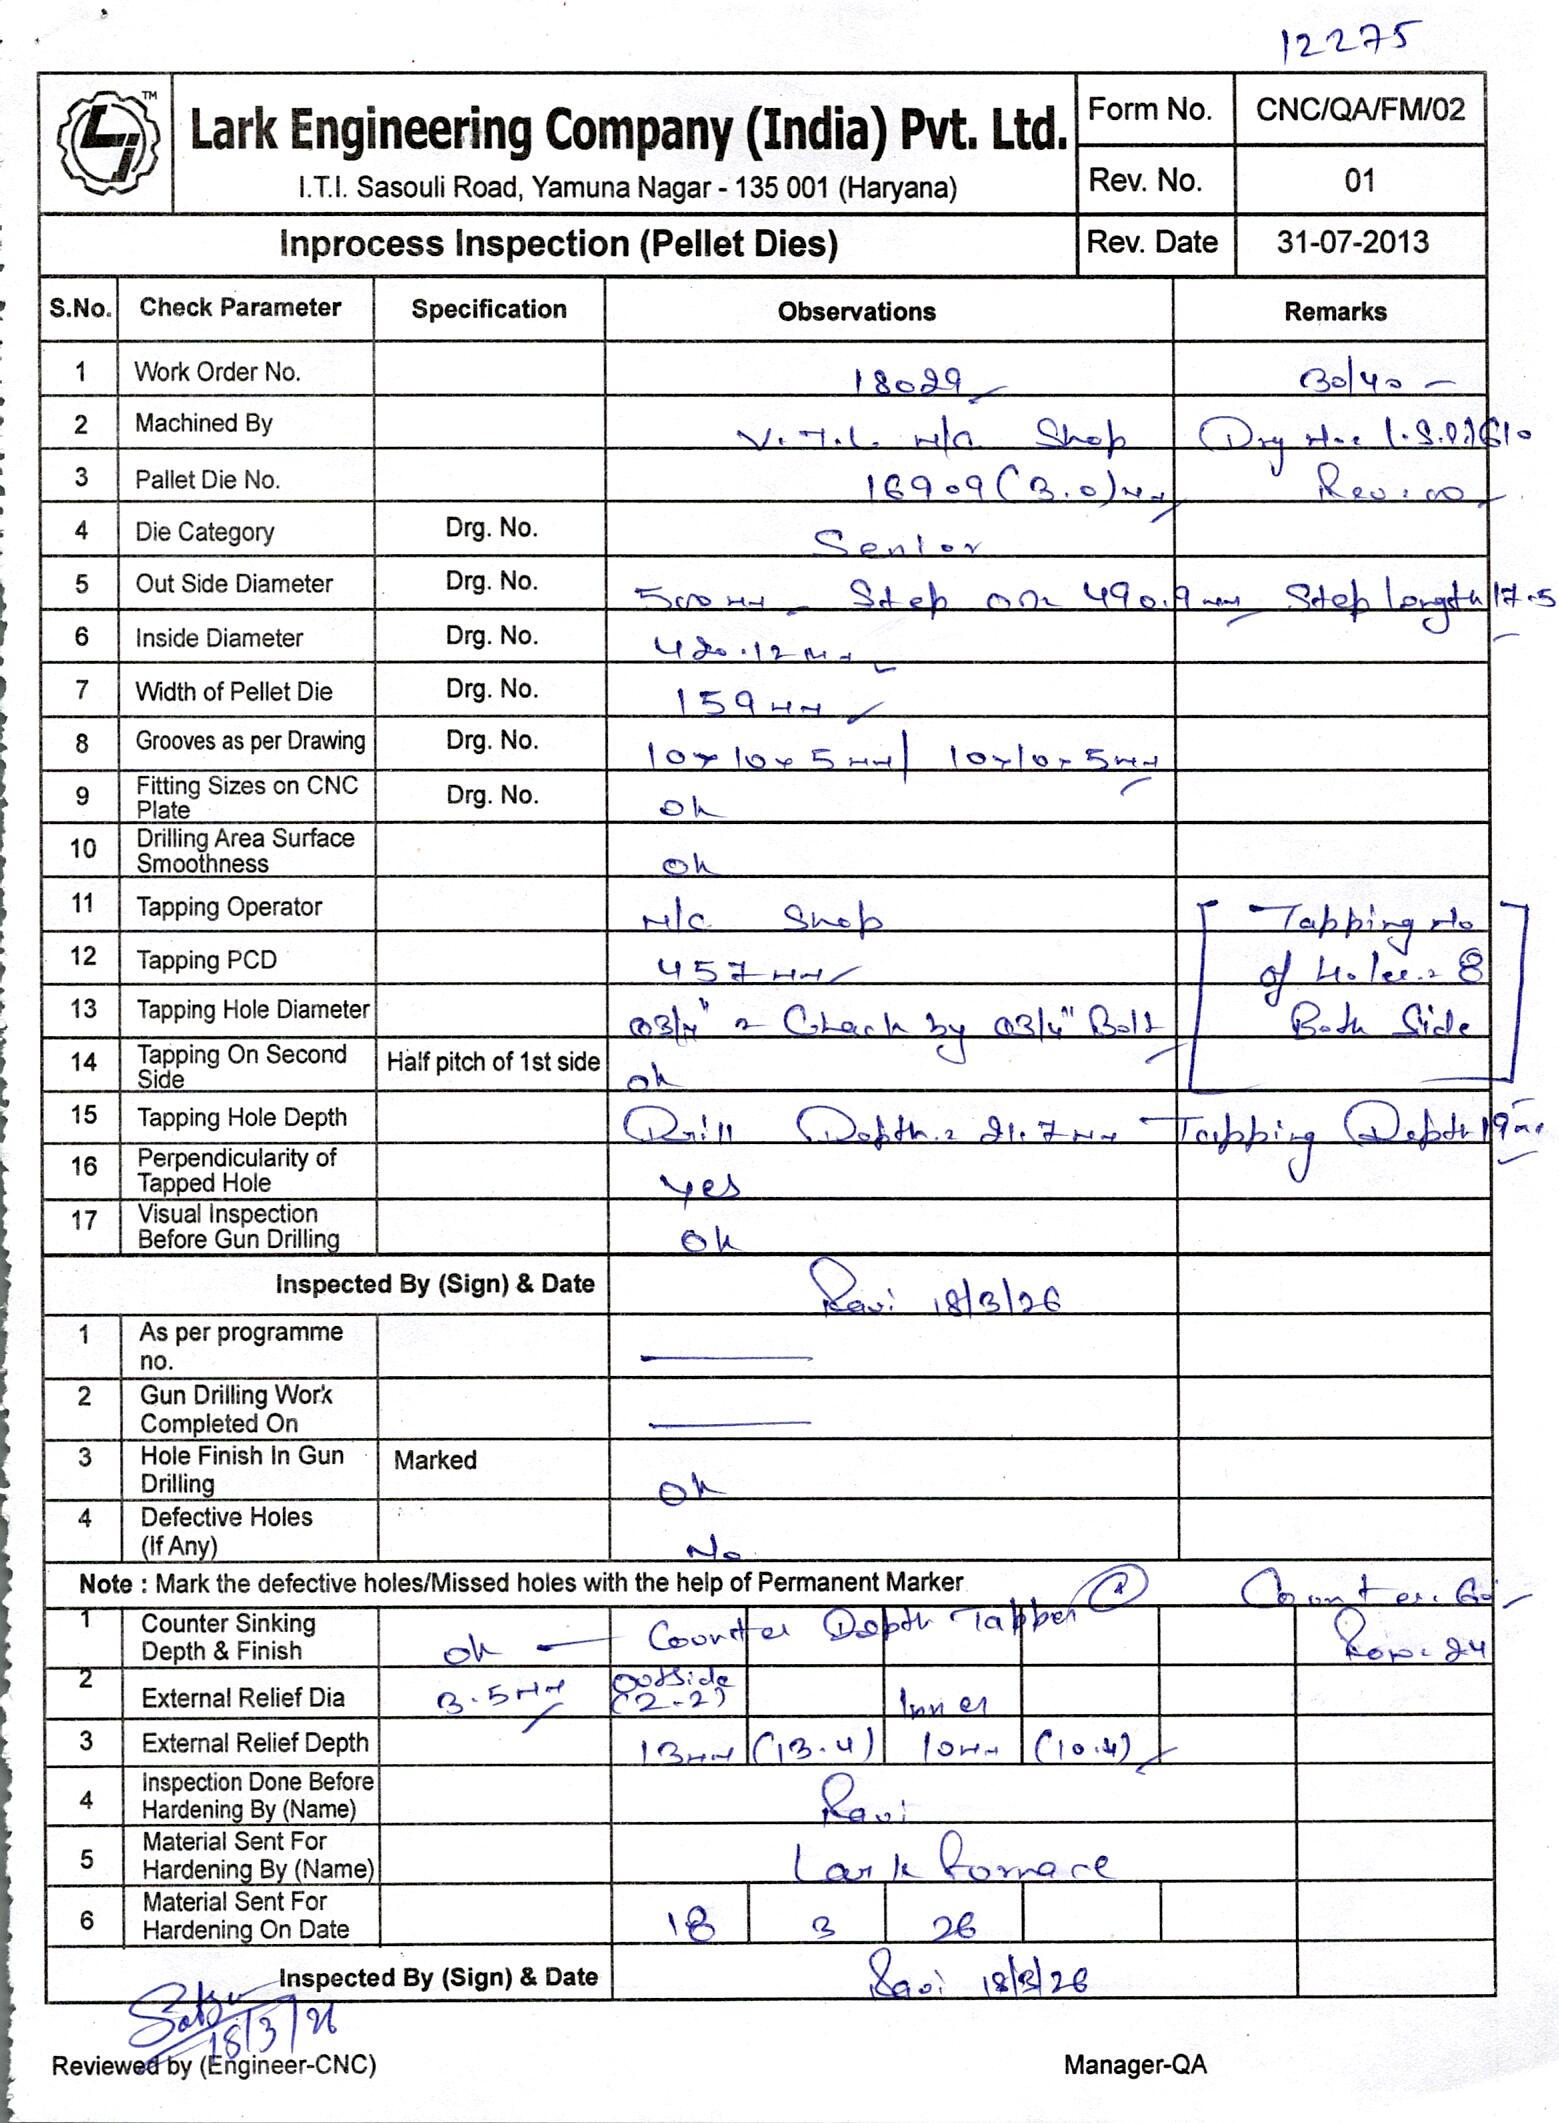 12275
TM
Lark Engineering Company (India) Pvt. Ltd.
I.T.I. Sasouli Road, Yamuna Nagar - 135 001 (Haryana)
Form No. CNC/QA/FM/02
Rev. No. 01
Inprocess Inspection (Pellet Dies) Rev. Date 31-07-2013
S.No. Check Parameter Specification Observations Remarks
1 Work Order No. 18029 30/40
2 Machined By V.T.L. M/C Shop Drg No: L.S.D. 1610
3 Pallet Die No. 16909 (3.0)mm Rev: 00
4 Die Category Drg. No. Senior
5 Out Side Diameter Drg. No. 500mm Step on 490.9mm Step length 17.5
6 Inside Diameter Drg. No. 420.12mm
7 Width of Pellet Die Drg. No. 159mm
8 Grooves as per Drawing Drg. No. 10x10x5mm | 10x10x5mm
9 Fitting Sizes on CNC Plate Drg. No. ok
10 Drilling Area Surface Smoothness ok
11 Tapping Operator M/C Shop Tapping No
12 Tapping PCD 457mm of Holes: 8
13 Tapping Hole Diameter Ø3/4" Check by Ø3/4" Bolt Both Side
14 Tapping On Second Side Half pitch of 1st side ok
15 Tapping Hole Depth Drill Depth: 21.7mm Tapping Depth 19mm
16 Perpendicularity of Tapped Hole Yes
17 Visual Inspection Before Gun Drilling Ok
Inspected By (Sign) & Date Ravi 18/3/26
1 As per programme no.
2 Gun Drilling Work Completed On
3 Hole Finish In Gun Drilling Marked Ok
4 Defective Holes (If Any) No
Note : Mark the defective holes/Missed holes with the help of Permanent Marker Counter: 60
1 Counter Sinking Depth & Finish ok — Counter Depth Tapper Row: 24
2 External Relief Dia 3.5mm Outside (2-2) Inner
3 External Relief Depth 13mm (13.4) 10mm (10.4)
4 Inspection Done Before Hardening By (Name) Ravi
5 Material Sent For Hardening By (Name) Lark Fornace
6 Material Sent For Hardening On Date 18 3 26
Inspected By (Sign) & Date Ravi 18/3/26
18/3/26
Reviewed by (Engineer-CNC) Manager-QA